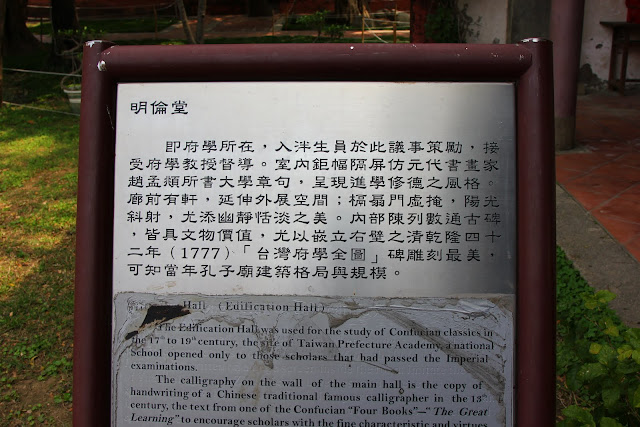 明倫堂
即府學所在，入泮生員於此議事策勵，接
受府學教授督導。室內鉅幅隔屏仿元代書畫家
趙孟頫所書大學章句，呈現進學修德之風格。
廊前有軒，延伸外展空間；槅扇門虛掩，陽光
斜射，尤添幽靜恬淡之美。內部陳列數通古碑
，皆具文物價值，尤以嵌立右壁之清乾隆四十
二年（1777）「台灣府學全圖」碑雕刻最美，
可知當年孔子廟建築格局與規模。
Hall (Edification Hall)
The Edification Hall was used for the study of Confucian classics in
the 17th to 19th century, the site of Taiwan Prefecture Academy, a national
School opened only to those scholars that bad passed the Imperial
examinations.
The calligraphy on the wall of the main hall is the copy of
handwriting of a Chinese traditional famous calligrapher in the 13th
century, the text from one of the Confucian "Four Books"—"The Great
Learning" to encourage scholars with the fine characteristic and virtues